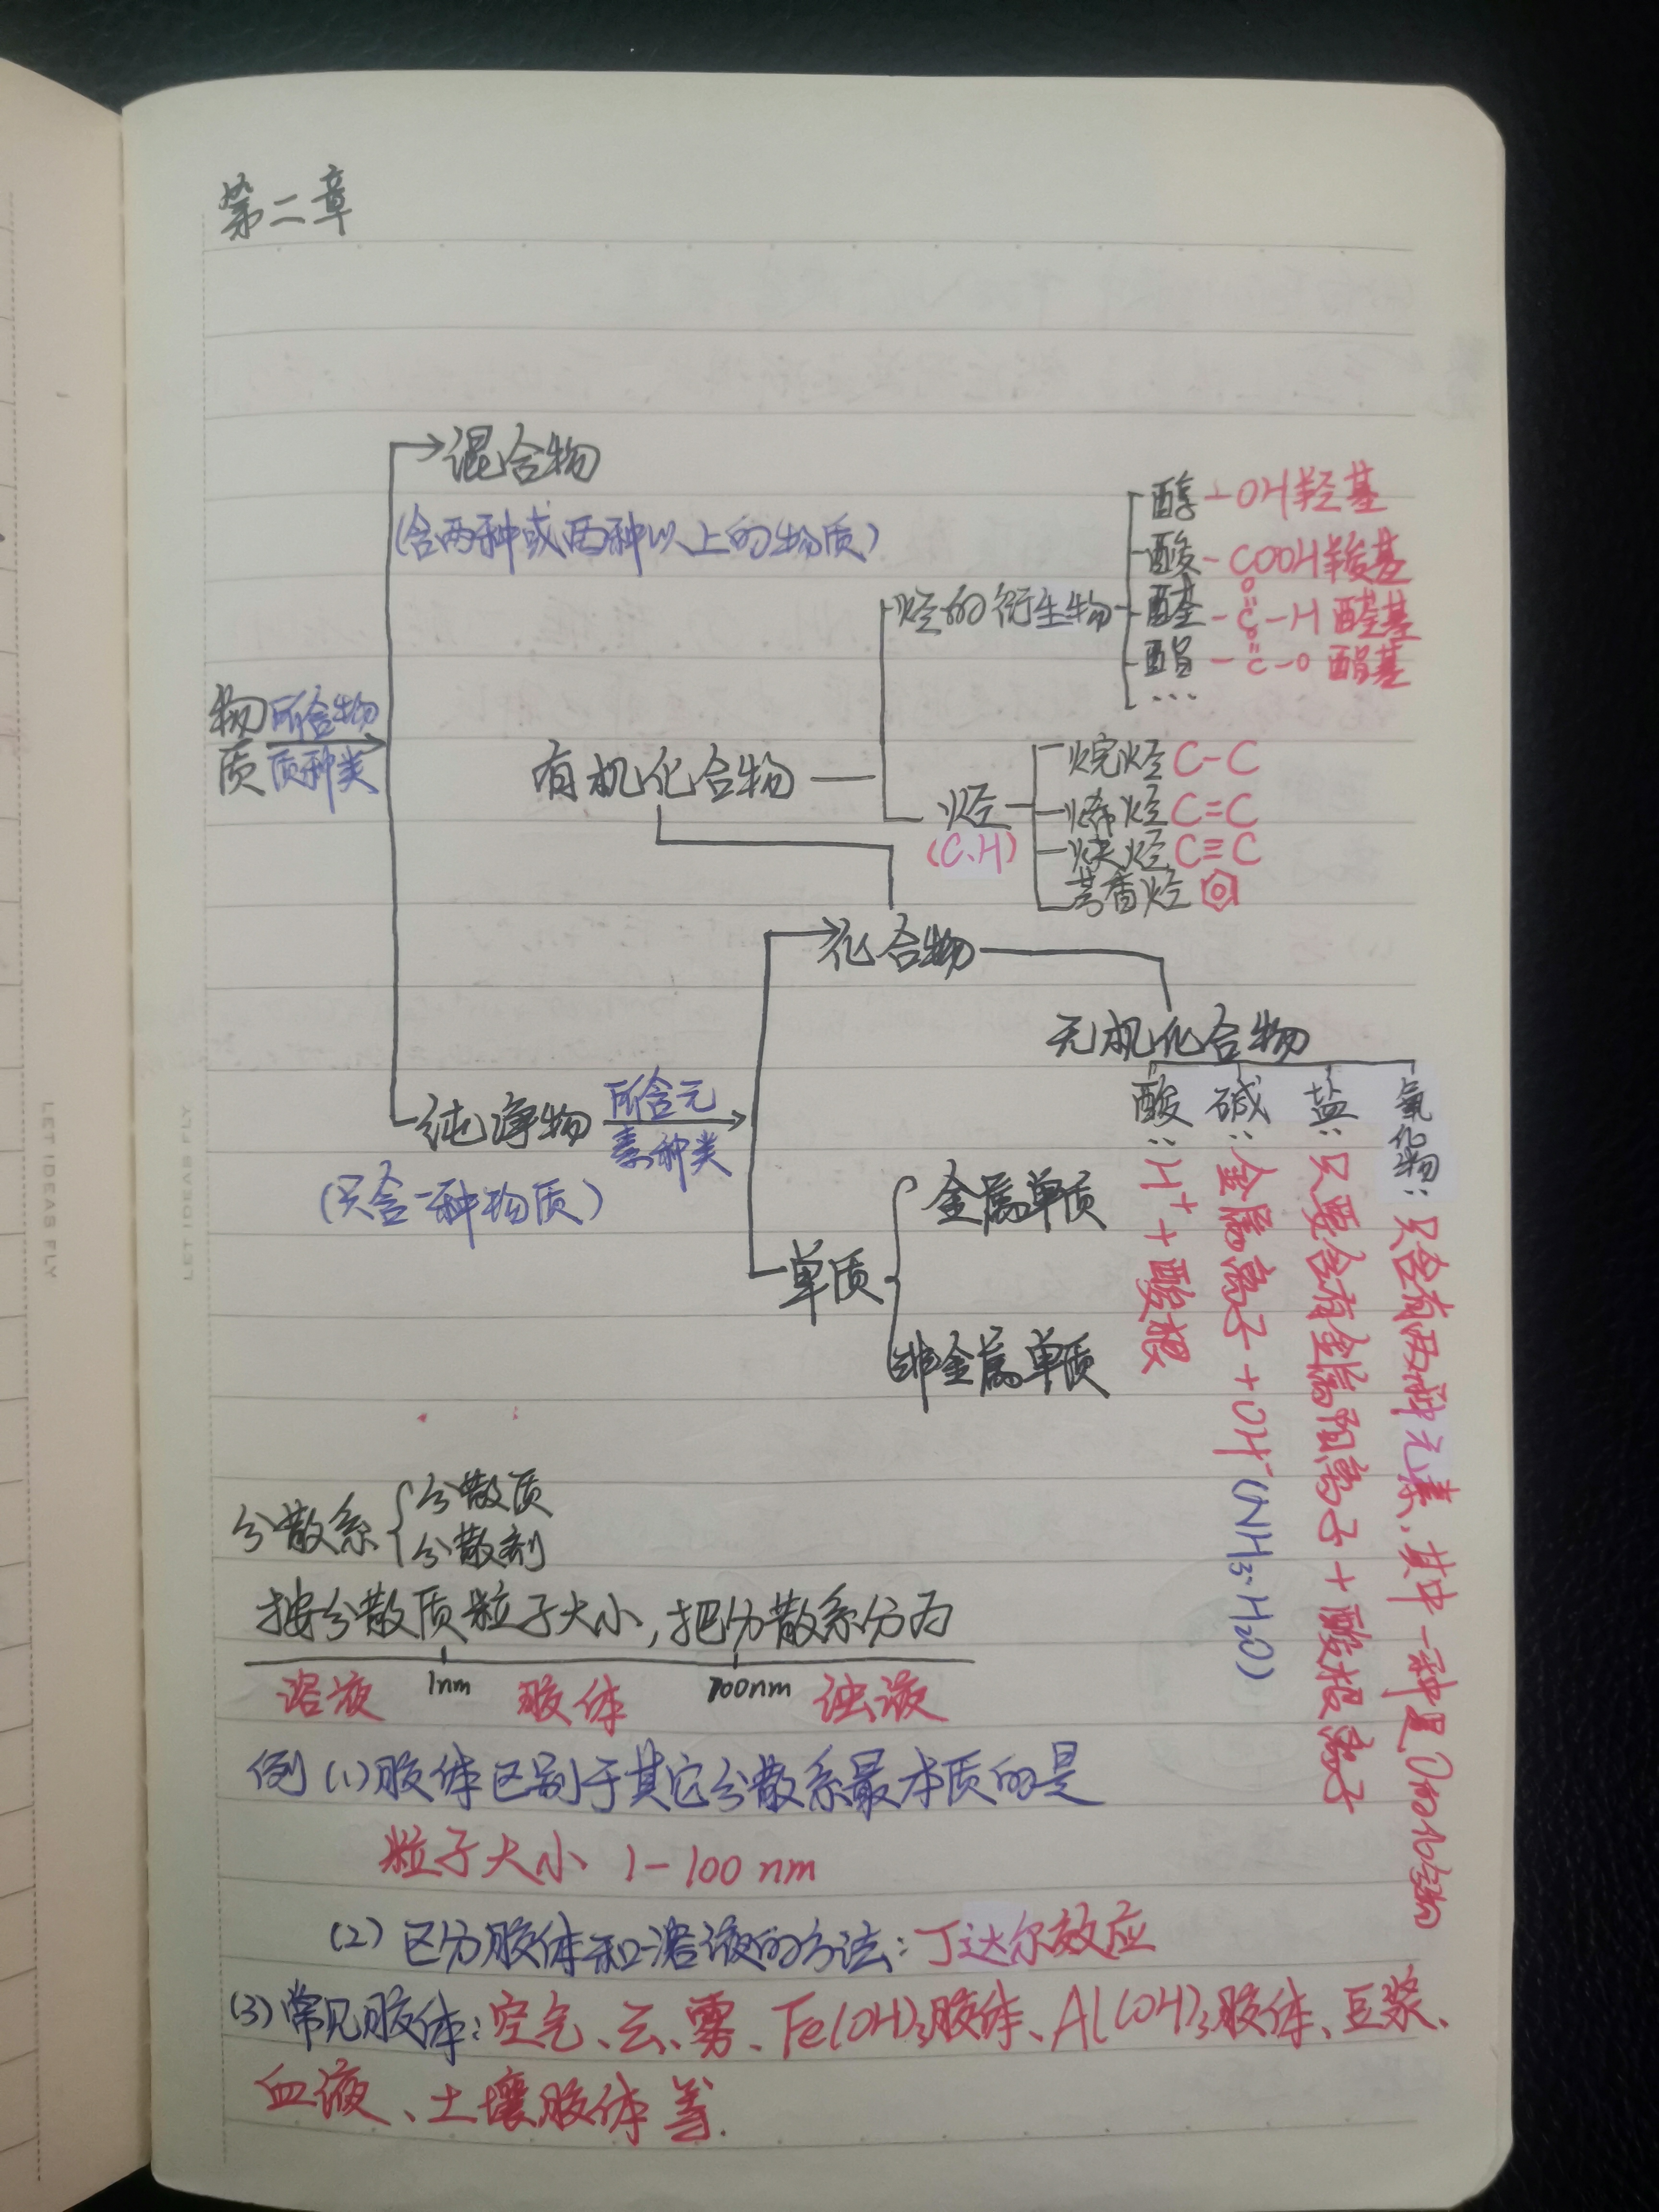 第二章
混合物
(含两种或两种以上的物质)
醇 -OH羟基
酸 -COOH羧基
烃的衍生物
O
醛 -C-H 醛基
O
酯 -C-O 酯基
...
物质
所含物质种类
有机化合物
烃
(C.H)
烷烃 C-C
烯烃 C=C
炔烃 C≡C
芳香烃
化合物
无机化合物
酸:H⁺+酸根
碱:金属离子+OH⁻(NH₃·H₂O)
盐:只要含有金属阳离子+酸根离子
氧化物:只含有两种元素,其中一种是
纯净物
所含元素种类
(只含一种物质)
金属单质
单质
非金属单质
分散系
分散质
分散剂
按分散质粒子大小,把分散系分为
溶液 1nm 胶体 100nm 浊液
例(1)胶体区别于其它分散系最本质的是
粒子大小 1-100 nm
(2)区分胶体和溶液的方法:丁达尔效应
(3)常见胶体:空气、云、雾、Fe(OH)₃胶体、Al(OH)₃胶体、豆浆、
血液、土壤胶体等.
LET IDEAS FLY
LET IDEAS FLY